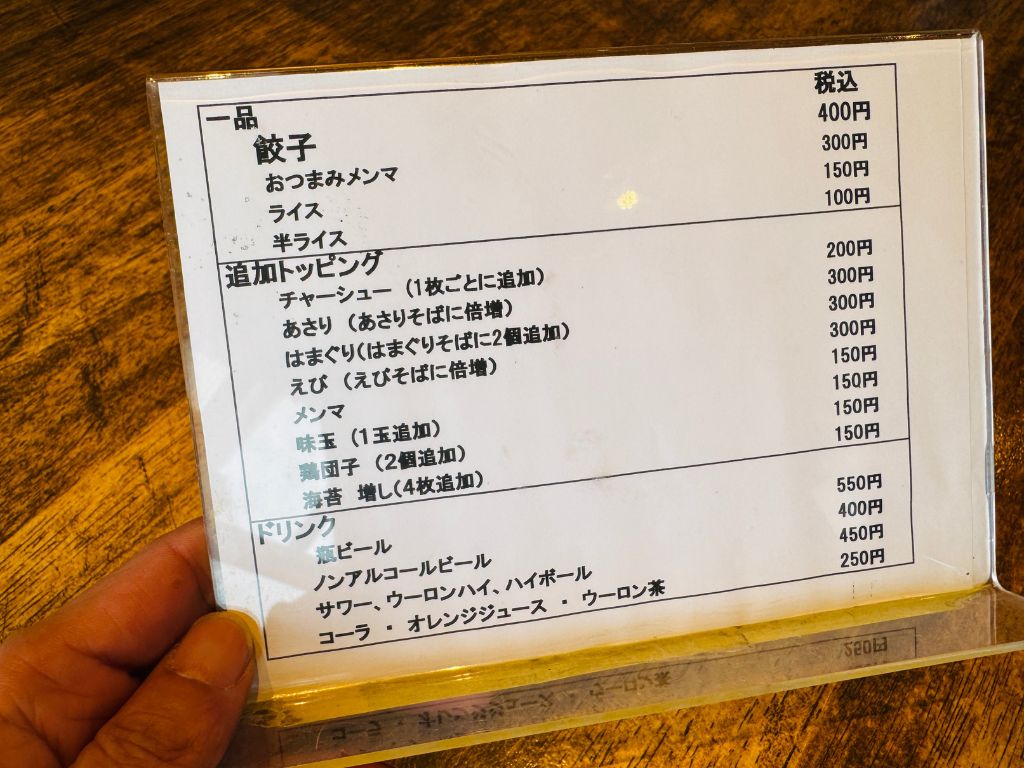 税込
一品
餃子 400円
おつまみメンマ 300円
ライス 150円
半ライス 100円
追加トッピング
チャーシュー (1枚ごとに追加) 200円
あさり (あさりそばに倍増) 300円
はまぐり(はまぐりそばに2個追加) 300円
えび (えびそばに倍増) 300円
メンマ 150円
味玉 (1玉追加) 150円
鶏団子 (2個追加) 150円
海苔 増し(4枚追加) 150円
ドリンク
瓶ビール 550円
ノンアルコールビール 400円
サワー、ウーロンハイ、ハイボール 450円
コーラ ・ オレンジジュース ・ ウーロン茶 250円